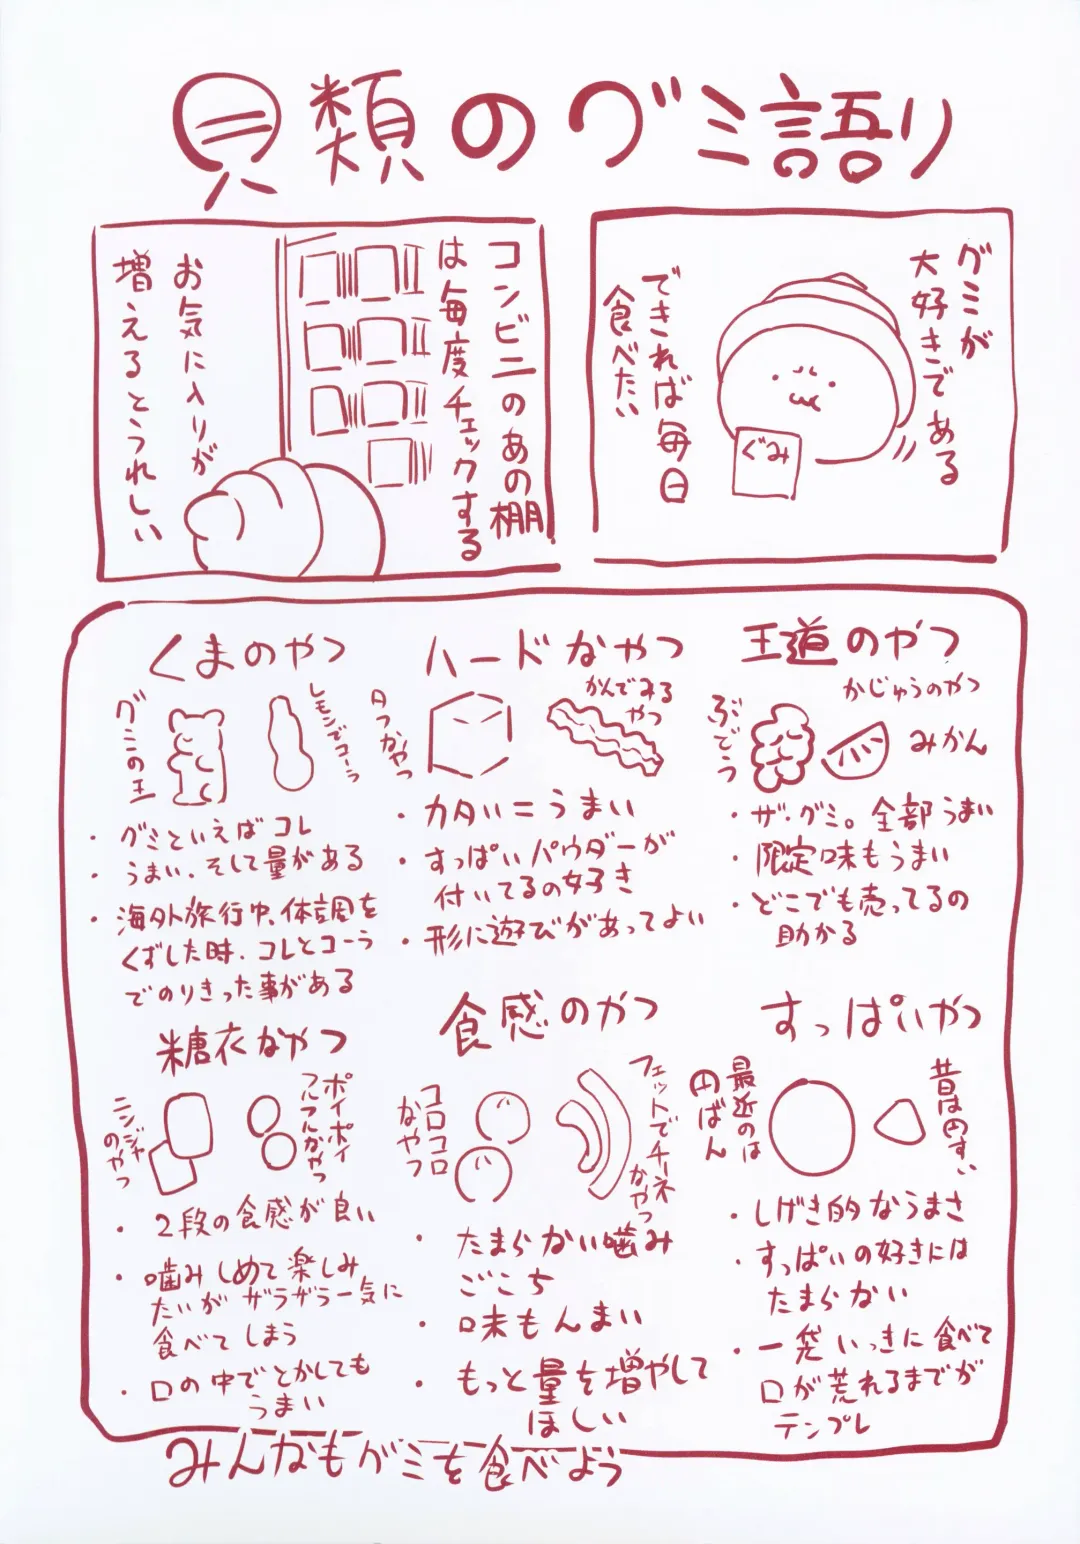 貝類のグミ語り
グミが
大好きである
できれば毎日
食べたい
ぐみ
コンビニのあの棚
は毎度チェックする
お気に入りが
増えるとうれしい
王道のやつ
かじゅうのやつ
ぶどう
みかん
・ザ・グミ。全部うまい
・限定味もうまい
・どこでも売ってるの
助かる
ハードなやつ
タフなやつ
かんでみる
やつ
・カタい=うまい
・すっぱいパウダーが
付いてるの好き
・形に遊びがあってよい
くまのやつ
グミの王
レモンでコーラ
・グミといえばコレ
・うまい、そして量がある
・海外旅行中、体調を
くずした時、コレとコーラ
でのりきった事がある
すっぱいやつ
昔はのすい
最近のは
円ばん
・しげき的なうまさ
・すっぱいの好きには
たまらない
・一袋いっきに食べて
口が荒れるまでが
テンプレ
食感のやつ
コロコロ
なやつ
フェットでチーネ
なやつ
・たまらない噛み
ごこち
・味もんまい
・もっと量を増やして
ほしい
糖衣なやつ
ニンジャ
のやつ
ポイポイ
フルフルなやつ
・2段の食感が良い
・噛みしめて楽しみ
たいがザラザラー気に
食べてしまう
・口の中でとかしても
うまい
みんなもグミを食べよう